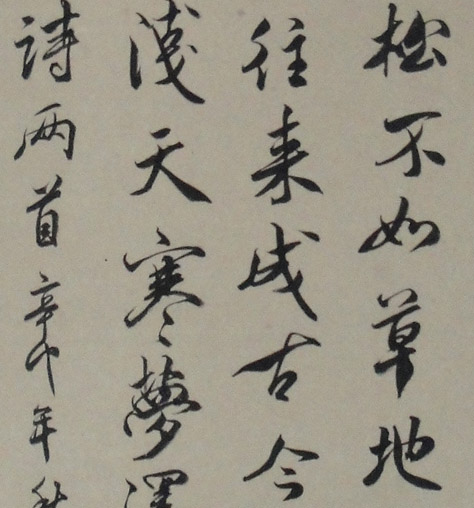 松不如草地
往来成古今
淺天寒夢澤
詩两首辛卯年秋